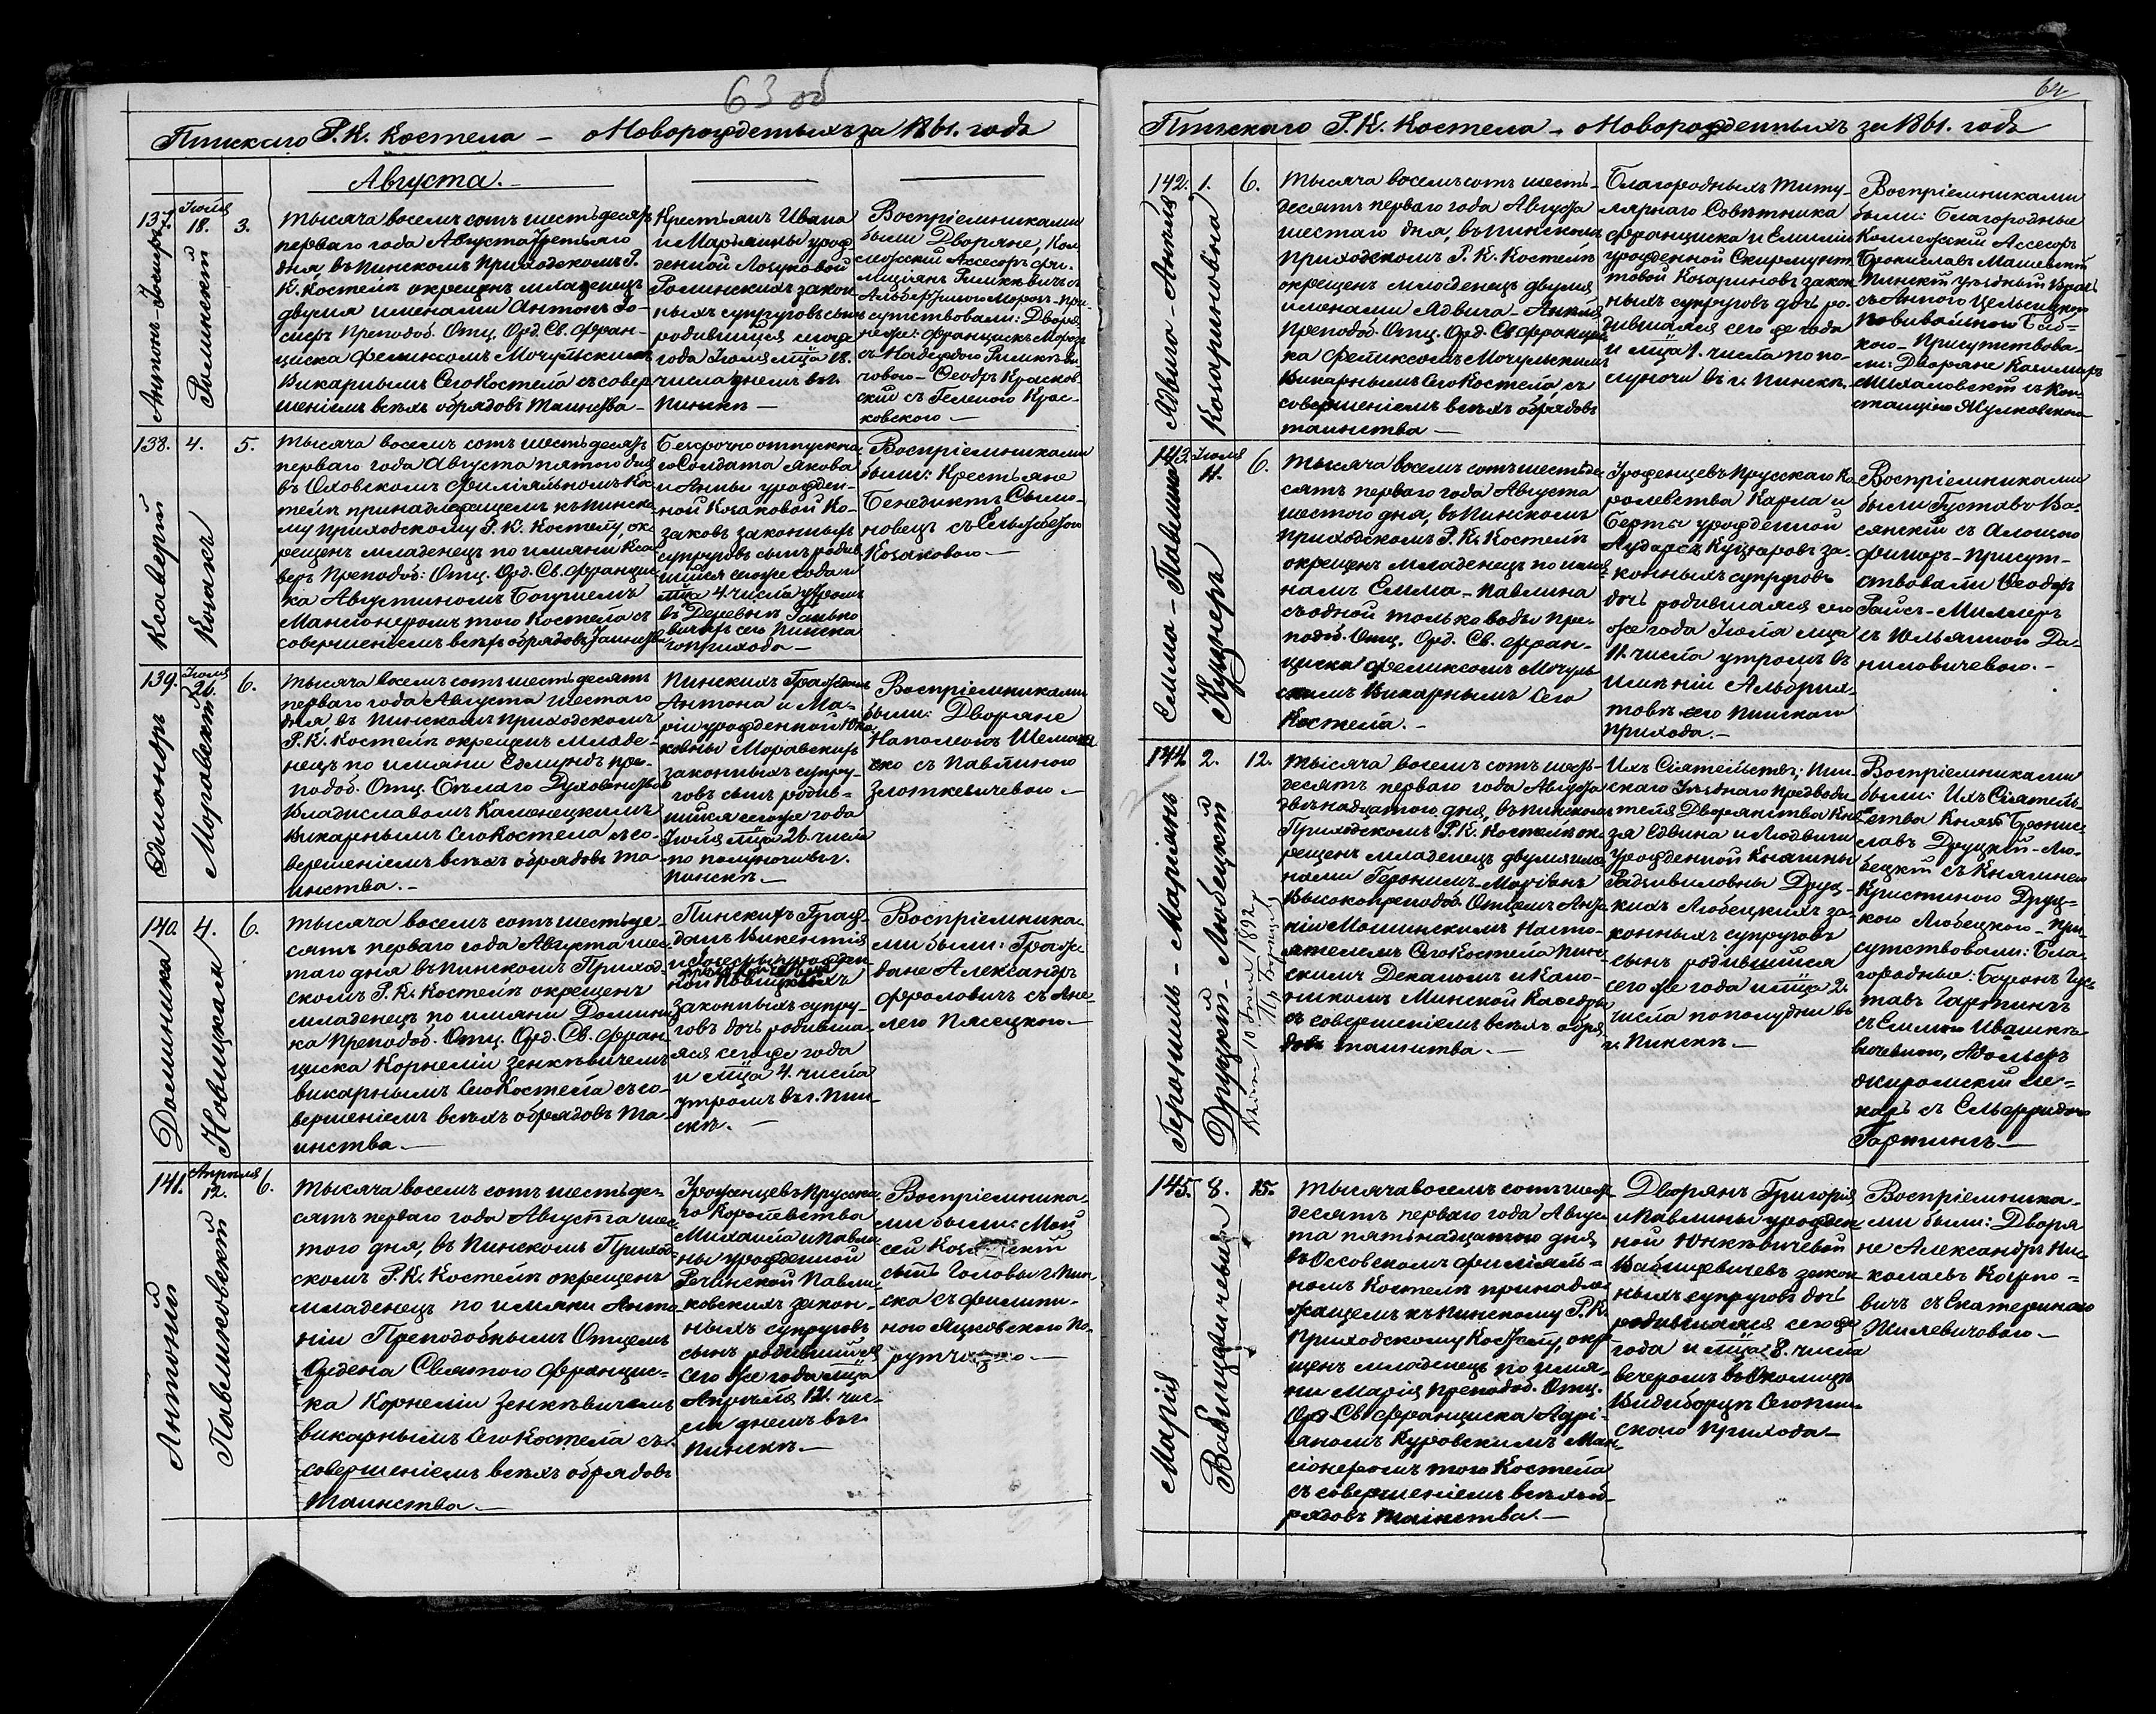 63 об
Пинскаго Р. К. Костела — о Новорожденныхъ за 1861. годъ
Августа. —
137.
Іюля
18.
3.
Антонъ-Іосифъ
Роминскій
Тысяча восемь сотъ шестьдесятъ
перваго года Августа третьяго
дня, въ Пинскомъ Приходскомъ Р.
К. Костелѣ окрещенъ младенецъ
двумя именами Антонъ Іо-
сифъ Преподоб. Отц. Орд. Св. Фран-
циска Феликсомъ Мочульскимъ
Викарнымъ Сего Костела съ совер
шеніемъ всѣхъ обрядовъ Таинства —
Крестьянъ Ивана
и Марьянны урож
денной
Роминскихъ закон
ныхъ супруговъ сынъ
родившійся сего же
года Іюля мѣца 18.
числа днемъ въ г.
Пинскѣ —
Воспріемниками
были Дворяне, Кол
лежскій Ассесоръ Фи-
лиціянъ Римкѣвичъ съ
Морозъ - При-
сутствовали: Дворя
не же: Францискъ Морозъ
съ Надеждою Римкѣ
човою — Ѳеодръ Красков-
скій съ Геленою Крас-
ковскою —
138.
4.
5.
Ксаверій
Козакъ
Тысяча восемь сотъ шестьдесятъ
перваго года Августа пятаго дня
въ Филіяльномъ Ко
телѣ принадлежащемъ къ Пинско-
му приходскому Р. К. Костелу, ок
рещенъ младенецъ по имяни Кса
веръ Преподоб: Отц. Орд. Св. Францис-
ка Августиномъ Богушемъ
Мансіонеромъ того Костела съ
совершеніемъ всѣхъ обрядовъ Таинства
Безсрочно отпускна
го Солдата Якова
и Анны урожден-
ной Козаковой Ко-
заковъ законныхъ
супруговъ сынъ родив
шійся сего же года и
мѣца 4 числа утромъ
въ Деревнѣ
вичахъ сего Пинска
го прихода —
Воспріемниками
были: Крестьяне
Бенедиктъ
новецъ съ Ельжбѣтою
Козаковою —
139.
Іюля
26.
6.
Эдмондръ
Моравскій
Тысяча восемь сотъ шестьдесятъ
перваго года Августа шестаго
дня въ Пинскомъ приходскомъ
Р. К. Костелѣ окрещенъ младе-
нецъ по имяни Едмундъ пре-
подоб. Отц. Бѣлаго Духовенства
Владиславомъ Каменецкимъ
Викарнымъ Сего Костела съ со-
вершеніемъ всѣхъ обрядовъ Та-
инства. —
Пинскихъ Гражданъ
Антона и Ма-
ріи урожденной
ковны Моравскихъ
законныхъ супру-
говъ сынъ родив-
шійся сего же года
Іюля мѣца 26. числа
по полуночи въ г.
Пинскѣ. —
Воспріемниками
были: Дворяне
Наполеонъ
ско съ Павлиною
Злоткевичевою. —
140.
4.
6.
Доминика
Новицкая
Тысяча восемь сотъ шестьде-
сятъ перваго года Августа шес
таго дня въ Пинскомъ Приход
скомъ Р. К. Костелѣ окрещенъ
младенецъ по имяни Домини
ка Преподоб. Отц. Орд. Св. Фран
циска Корнелій Зенкѣвичемъ
викарнымъ Сего Костела съ со-
вершеніемъ всѣхъ обрядовъ Та-
инства. —
Пинскихъ Граж-
данъ Викентія
законныхъ супру-
говъ дочь родивша-
яся сего же года
и мѣца 4. числа
утромъ въ г. Пин-
скѣ. —
Воспріемника-
ми были: Граж
дане Александръ
Фроловичъ съ Ане-
лею Пясецкою —
141.
Апрѣля
12.
6.
Антоній
Павликовскій
Тысяча восемь сотъ шестьде-
сятъ перваго года Августа шес
таго дня, въ Пинскомъ Приход-
скомъ Р. К. Костелѣ окрещенъ
младенецъ по имяни Анто
ній Преподобнымъ Отцемъ
Ордена Святаго Францис-
ка Корнелій Зенкѣвичемъ
викарнымъ Сего Костела съ
совершеніемъ всѣхъ обрядовъ
Таинства. —
Урожанцевъ Прусска-
го Королевства
Михаила и Павли
ны урожденной
Речинской Павли-
ковскихъ закон-
ныхъ супруговъ
сынъ родившійся
сего же года мѣца
Апрѣля 12. чис-
ла днемъ въ г.
Пинскѣ. —
Воспріемника-
ми были: Мои
сей
сынъ Головы г. Пин-
ска съ Филипи-
ною Яцковскою По-
64
Пинскаго Р. К. Костела — о Новорожденныхъ за 1861. годъ
142.
1.
6.
Ядвига - Антія
Козариновна
Тысяча восемъ сотъ шесть-
десятъ перваго года Августа
шестаго дня, въ Пинскомъ
Приходскомъ Р. К. Костелѣ
окрещенъ младенецъ двумя
именами Ядвига -
Преподоб. Отц. Орд. Св. Францис
ка Феликсомъ Мочульскимъ
Викарнымъ Сего Костела, съ
совершеніемъ всѣхъ обрядовъ
таинства —
Благородныхъ Титу-
лярнаго Совѣтника
Франциска и Емиліи
урожденной Скирмунт
товой Козариновъ закон
ныхъ супруговъ дочь ро-
дившаяся сего же года
и мѣца 1. числа по по-
луночи въ г. Пинскѣ.
Воспріемниками
были: Благородные
Коллежскій Ассесоръ
Брониславъ Машевскій
Пинскій уѣздный Врачъ
съ Анною Цельсицкою
Повивальною Баб-
кою — Присутствова-
ли: Дворяне Казимиръ
Михаловскій съ Кон-
станціею Жулковскою
143.
Іюля
11.
6.
Емма - Павлина
Куцнеръ
Тысяча восемь сотъ шестьде-
сятъ перваго года Августа
шестаго дня, въ Пинскомъ
приходскомъ Р. К. Костелѣ
окрещенъ младенецъ по име-
намъ Емма - Павлина
съ одной только воды Пре-
подоб. Отц. Орд. Св. Фран-
циска Феликсомъ Мочуль
скимъ Викарнымъ Сего
Костела. —
Урожденцевъ Прусскаго Ко
ролевства Карла и
Берты урожденной
Куцнеровъ за-
конныхъ супруговъ
дочь родившаяся сего
же года Іюля мѣца
11. числа утромъ въ
имѣніи Альбрих-
товѣ сего Пинскаго
прихода. —
Воспріемниками
были Густавъ Ва-
сянскій съ Алоизою
Фишеръ - Присут-
ствовали Ѳеодоръ
Райсъ-Миллеръ
съ Юльянною Да-
ниловичевою. —
144
2.
12.
Геронимъ - Маріянъ
Друцкій - Любецкій
1892
Тысяча восемь сотъ шесть-
десятъ перваго года Августа
двѣнадцатаго дня, въ Пинскомъ
Приходскомъ Р. К. Костелѣ ок-
рещенъ младенецъ двумя име-
нами Геронимъ - Маріянъ
Высокопреподоб. Отцемъ Анто
ніи Мошинскимъ Насто-
ятелемъ Сего Костела Пин-
скимъ Деканомъ и Кано-
никомъ Минской Каѳедры
съ совершеніемъ всѣхъ обря
довъ таинства. —
Ихъ Сіятельствъ: Пин-
скаго Уѣзднаго Предводи-
теля Дворянства Кня
зя Едвина и Людвики
Урожденной Княжны
Радзивиловны Друц-
кихъ Любецкихъ за-
конныхъ супруговъ
сынъ родившійся
сего же года и мѣца 2.
числа по полудни въ
г. Пинскѣ. —
Воспріемниками
были: Ихъ Сіятель-
ства Князь Бронис-
лавъ Друцкій-Лю-
бецкій съ Княжною
Кристиною Друц-
кою Любецкою - При-
сутствовали: Бла-
городные: Баронъ Гус-
тавъ Гартингъ
съ Емиліею Ивашкѣ-
вичевною, Адольфъ
Жиромскій Ле-
каръ съ Ельфридою
Гартингъ —
145.
8.
15.
Марія
Вабищевичевна
Тысяча восемь сотъ шесть-
десятъ перваго года Авгус-
та пятьнадцатаго дня,
въ Оссовскомъ Филіяль-
номъ Костелѣ принадле-
жащемъ къ Пинскому Р. К.
Приходскому Костелу, окре
щенъ младенецъ по имя-
ни Марія Преподоб. Отц.
Орд. Св. Франциска Адрі-
яномъ Куровскимъ Ман-
сіонеромъ того Костела
съ совершеніемъ всѣхъ об-
рядовъ таинства. —
Дворянъ Григорія
и Павлины урожден
ной Юнкѣвичевой
Вабищевичевъ закон-
ныхъ супруговъ дочь
родившаяся сего же
года и мѣца 8. числа
вечеромъ въ Околицѣ
Видиборцѣ Сего Пин-
скаго Прихода —
Воспріемника-
ми были: Дворя
не Александръ Ни-
колаевъ Корпо-
вичъ съ Екатериною
Жилевичовою —